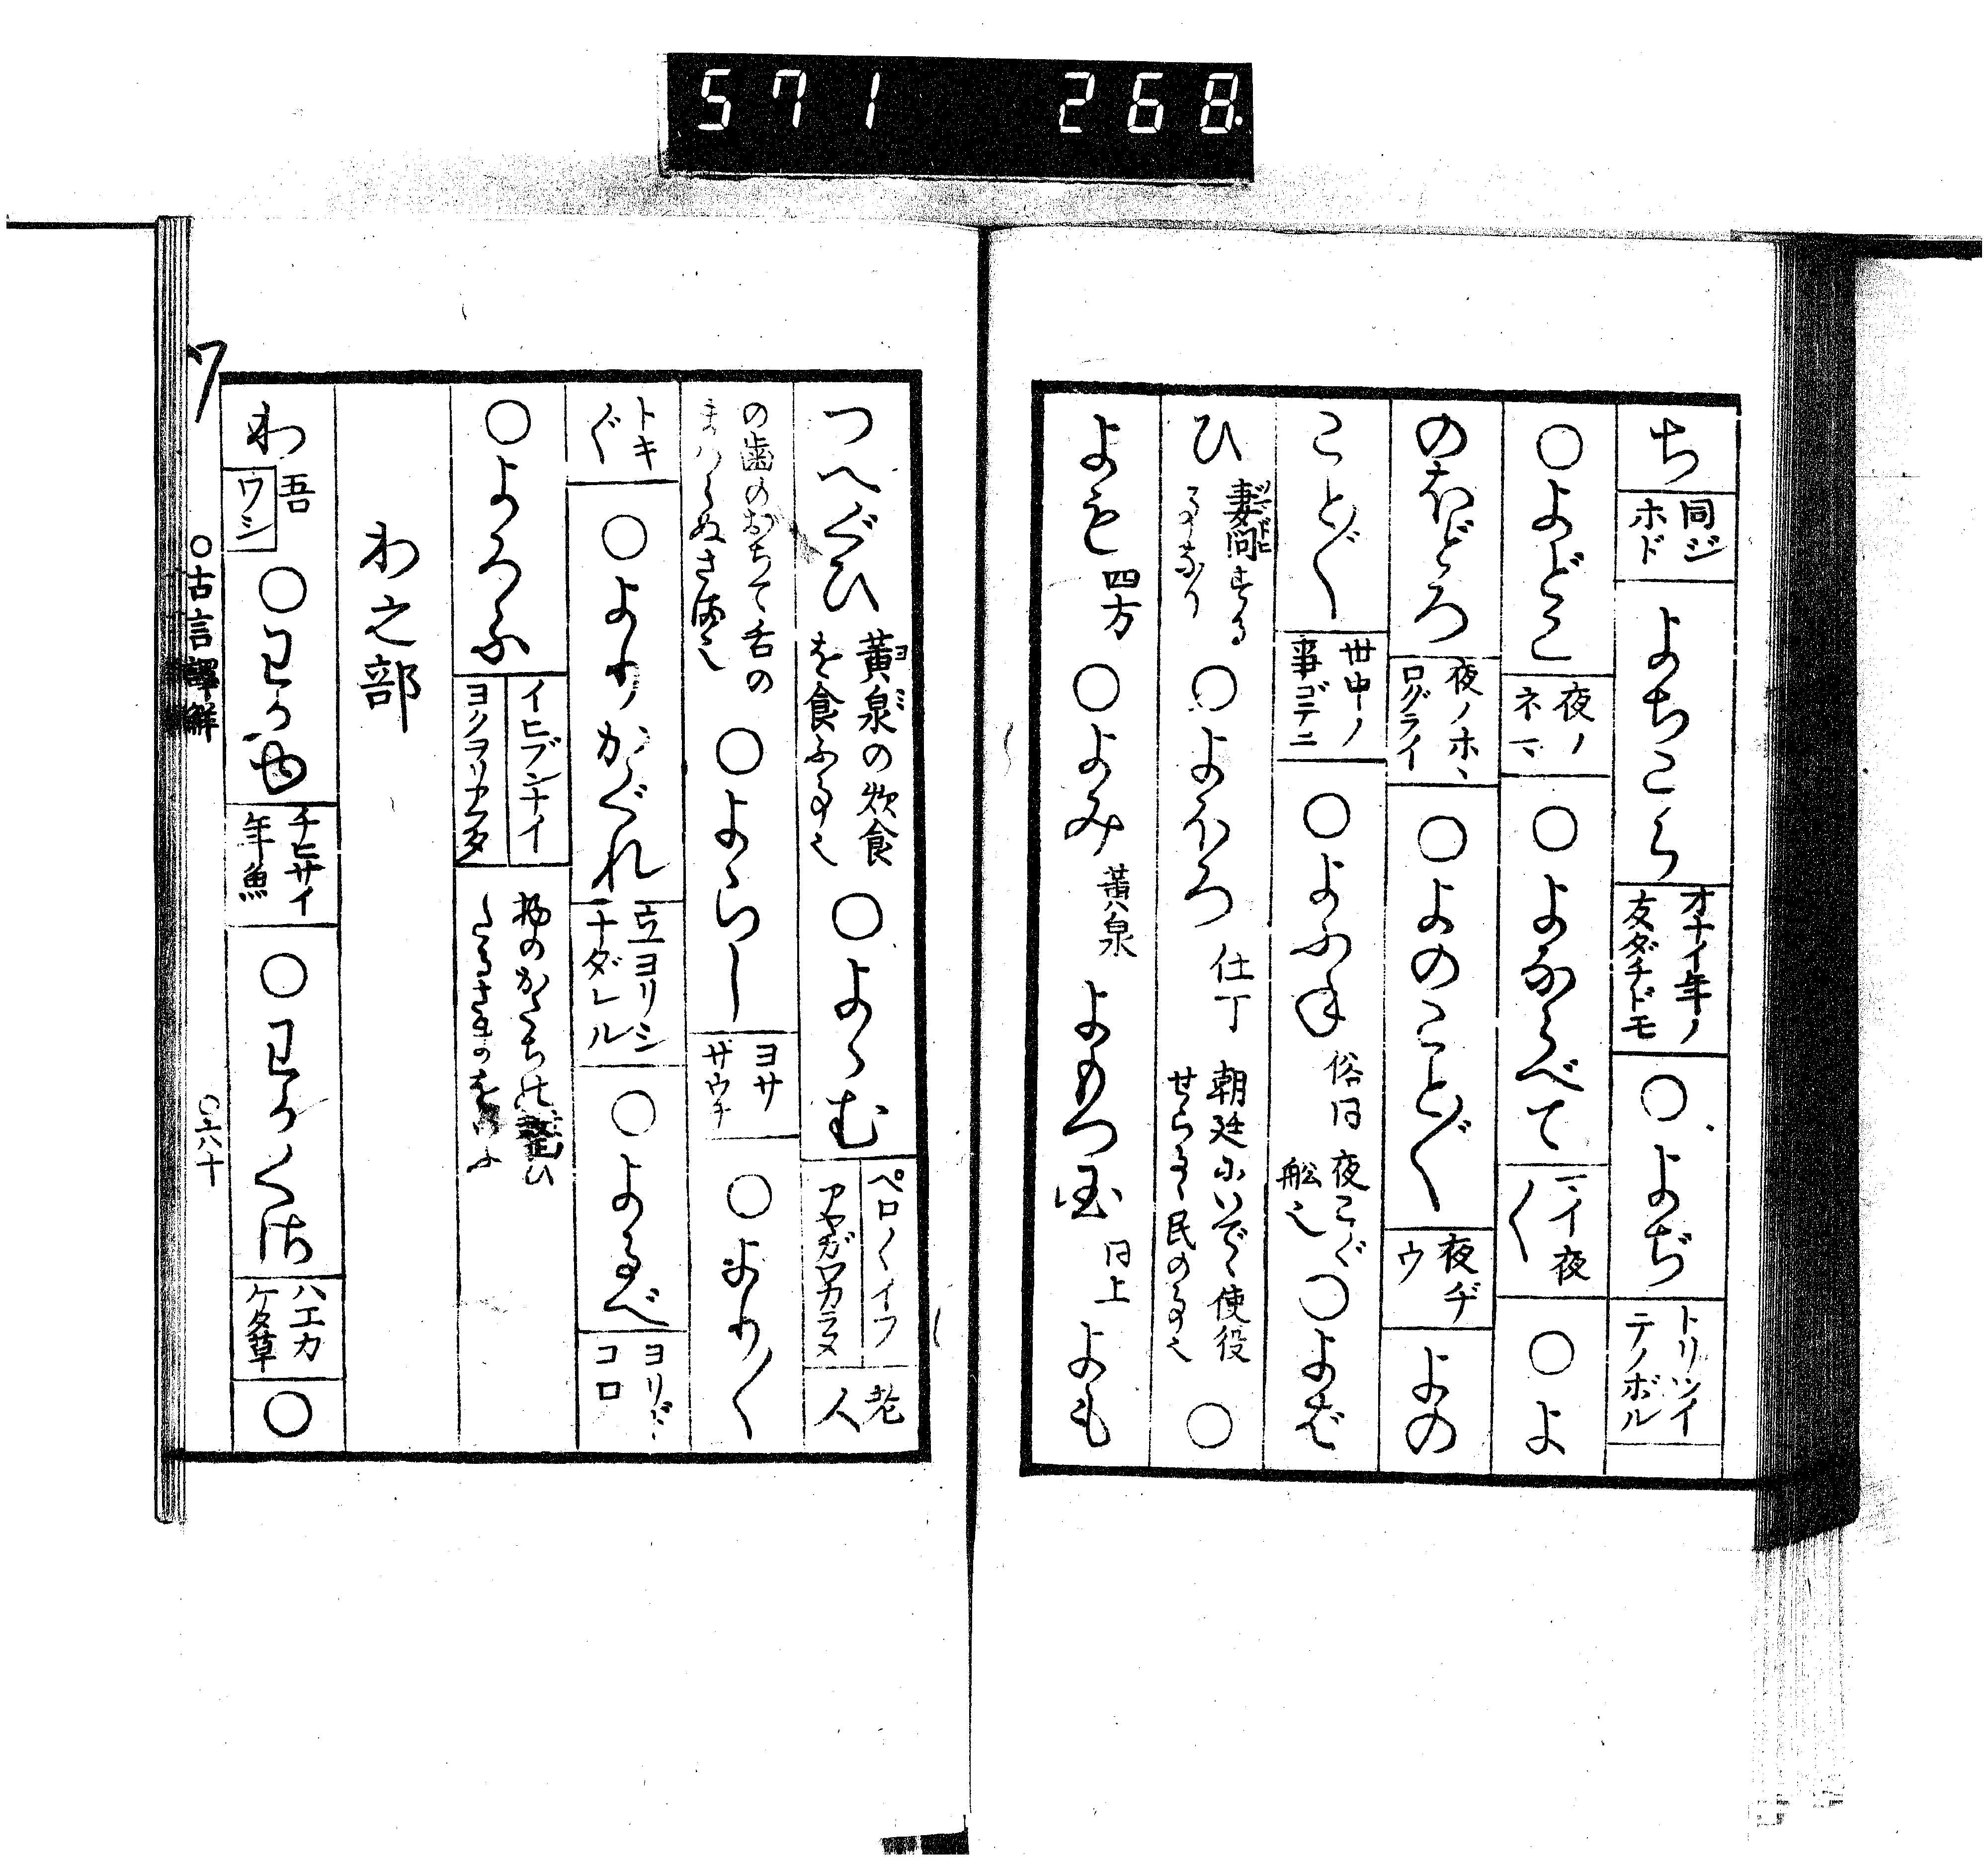 571 268
ち 同ジホド よちこら オナイ年ノ友ダチドモ ○よぢ トリツイテノボル
○よどこ 夜ノネマ ○よならべて マイ夜〱 ○よ
のほどろ 夜ノホヽログライ ○よのこと〲 夜ヂウ よの
こと〲 世中ノ事ゴテニ ○よふね 俗同 夜こぐ舩也 ○よば
ひ 妻問する事なり ○よほろ 仕丁 朝廷にいでゝ使役せらるゝ民の事也 ○
よも 四方 ○よみ 黄泉 よもつ国 同上 よも
つへぐひ 黄泉の炊食を食ふ事也 ○よゝむ ペロ〱イフアヤガワカラヌ 老人
の歯のおちて舌のまはらぬさま也 ○よゝらし ヨサザウナ ○より〱
トキ〲 ○よりかぐれ 立ヨリシナダレル ○よるべ ヨリドコロ
○よろふ イヒブンナイヨクヲリアフタ 物のかたちの整ひたるさまをいふ
わ之部
わ 吾 ワシ ○わかゆ チヒサイ年魚 ○わかくさ ハエカケタ草 ○
ワ ○古言譯解 ○六八十